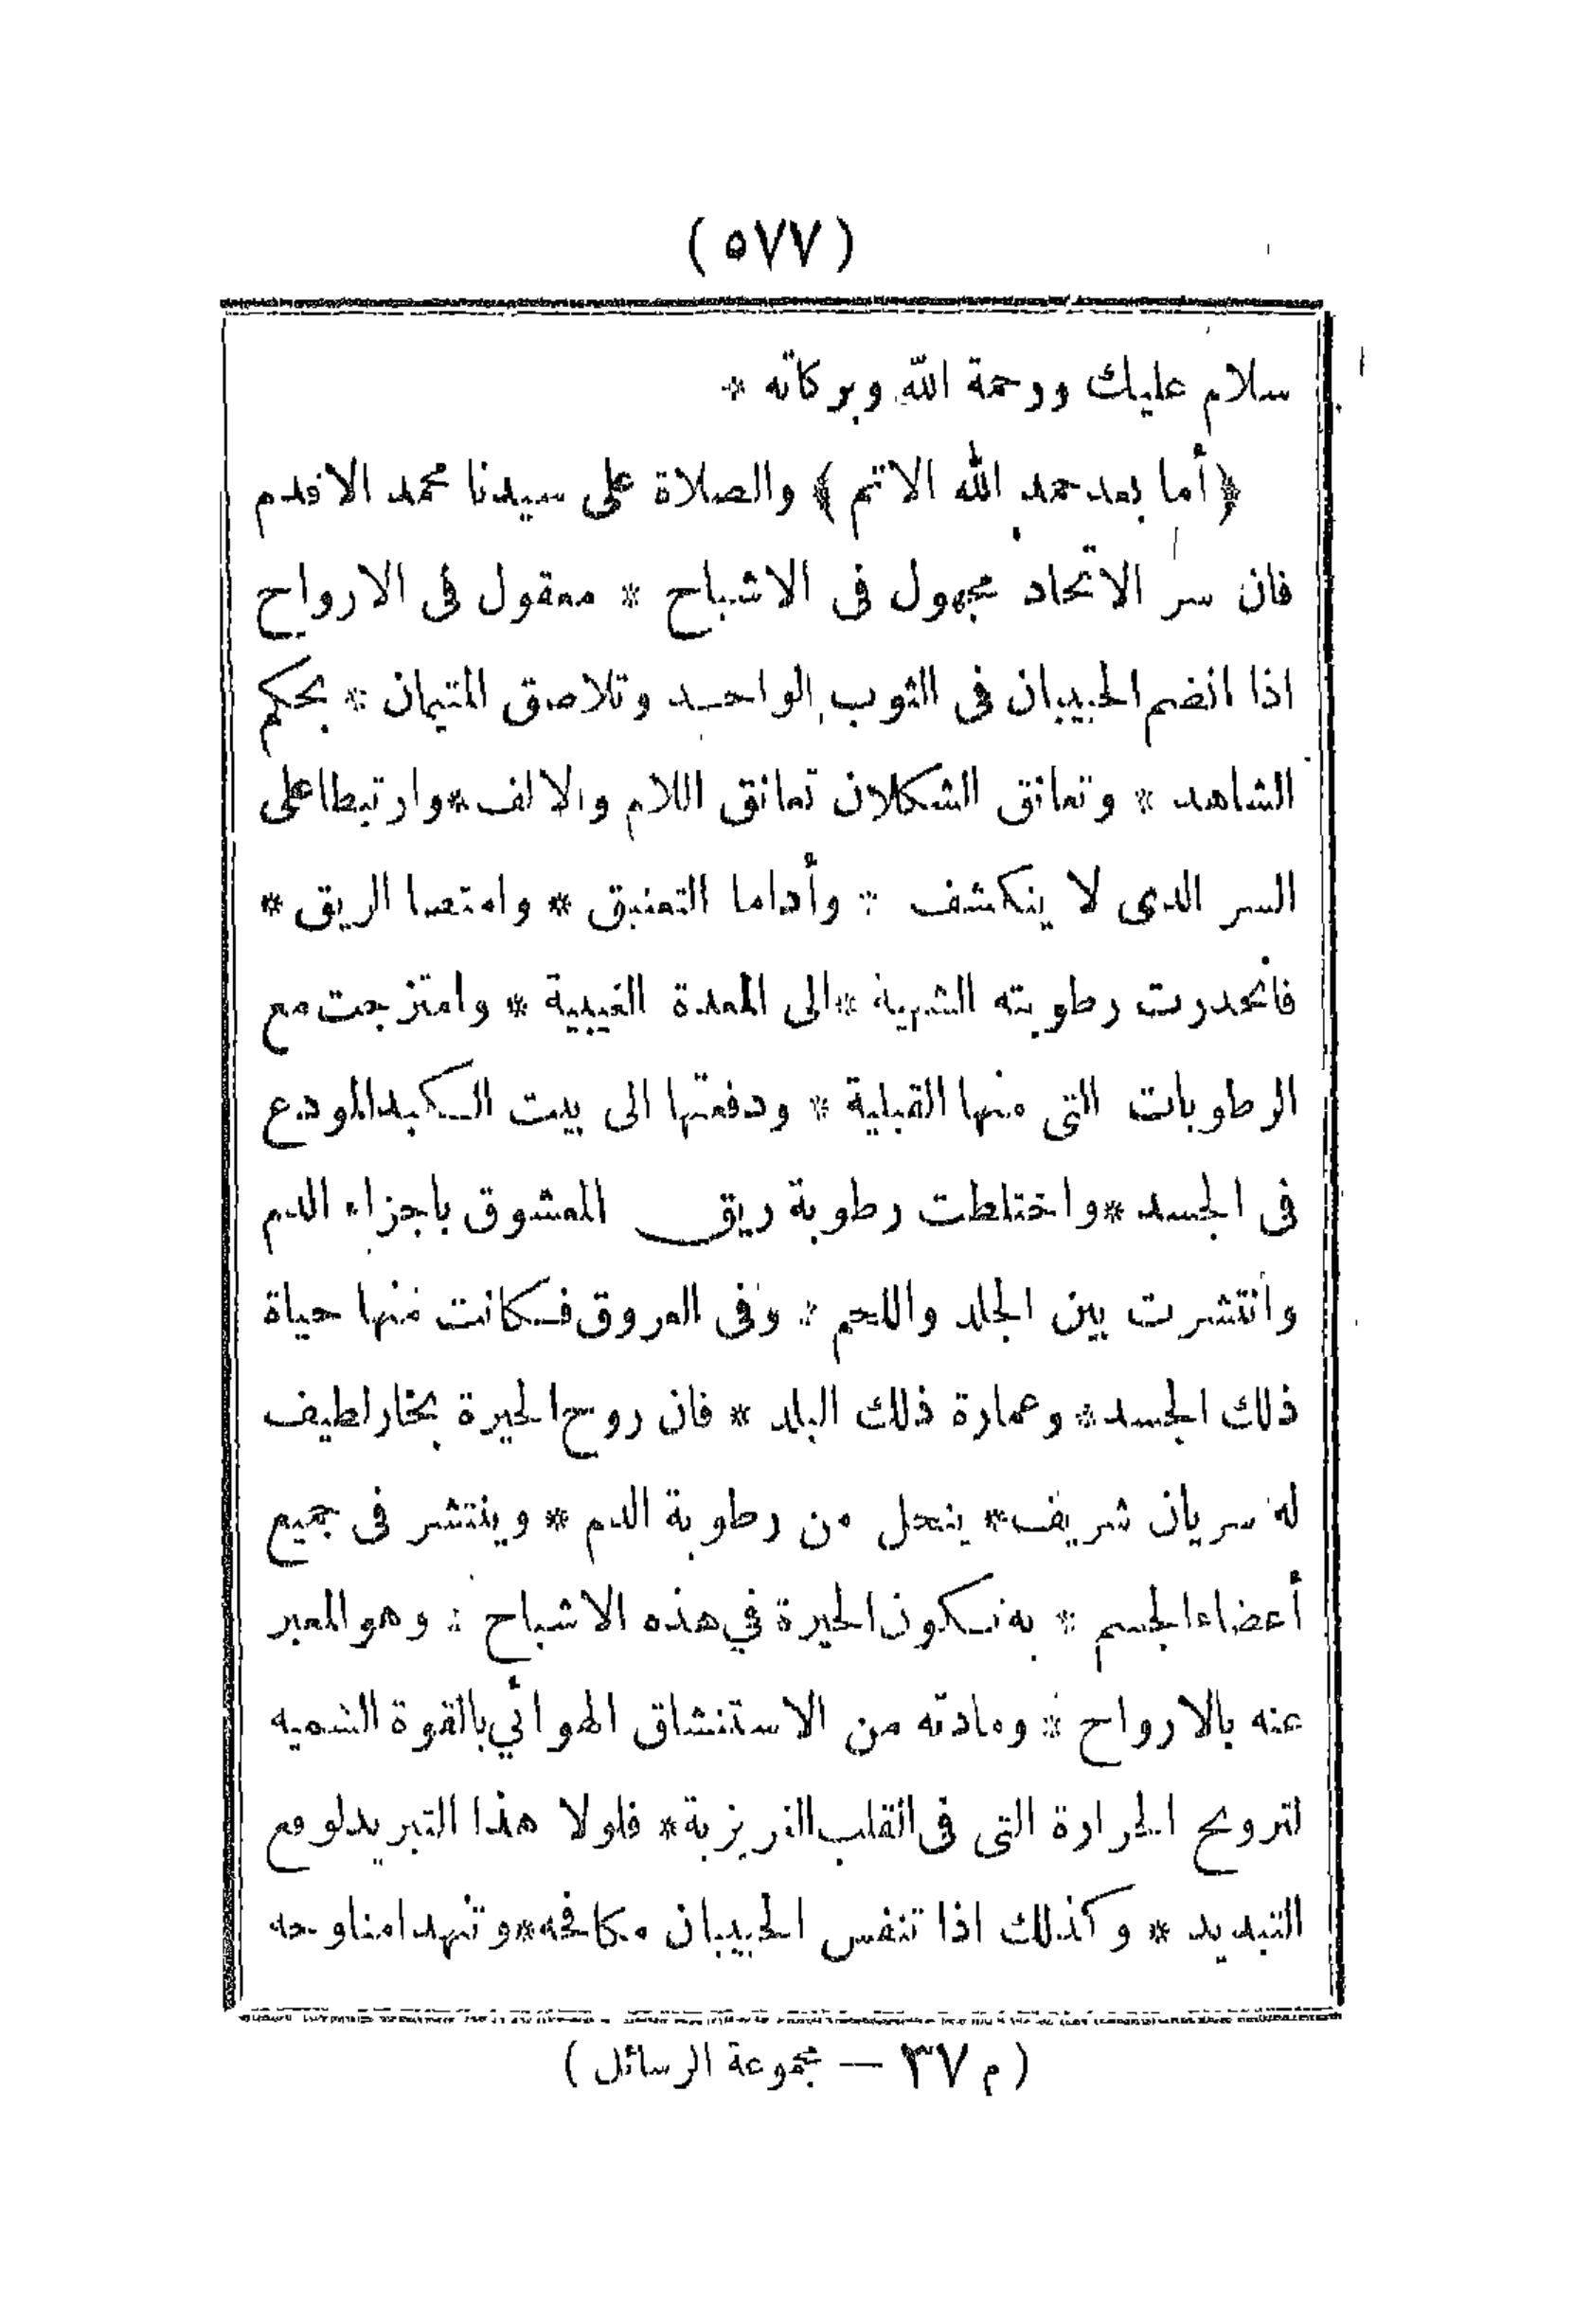 ( ٥٧٧ )
سلام عليك ورحمة الله وبركاته *
﴿ أما بعد حمد الله الاتم ﴾ والصلاة على سيدنا محمد الاقدم
فان سر الاتحاد مجهول فى الاشباح * معقول فى الارواح
اذا انضم الحبيبان فى الثوب الواحد وتلاصق المتيمان * بحكم
الشاهد * وتعانق الشكلان تعانق اللام والالف * وارتبطا على
السر الدى لا ينكشف * وأداما التعنيق * وامتصا الريق *
فانحدرت رطوبته الشهية * الى المعدة الغيبية * وامتزجت مع
الرطوبات التى منها القبلية * ودفعتها الى بيت الكبد المودع
فى الجسد * واختلطت رطوبة ريق المعشوق باجزاء الدم
وانتشرت بين الجلد واللحم * وفى العروق فكانت منها حياة
ذلك الجسد * وعمارة ذلك البلد * فان روح الحيرة بخار لطيف
له سريان شريف * ينحل من رطوبة الدم * وينتشر فى جميع
أعضاء الجسم * به تكون الحيرة في هذه الاشباح * وهو المعبر
عنه بالارواح * ومادته من الاستنشاق الهوائي بالقوة الشميه
لترويح الحرارة التى فى القلب الغريزية * فلولا هذا التبريد لوقع
التبديد * وكذلك اذا تنفس الحبيبان مكافحه * وتنهدا مناوحه
( م ٣٧ — مجموعة الرسائل )